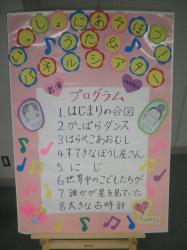 いっしょにあそぼう
うた&
パネルシアター
プログラム
1.はじまりの合図
2.かっぱらダンス
3.はらぺこあおむし
4.すてきなぼうし屋さん
5.にじ
6.世界中のこどもたちが
7.誰かが星を見ていた
8.大きな古時計